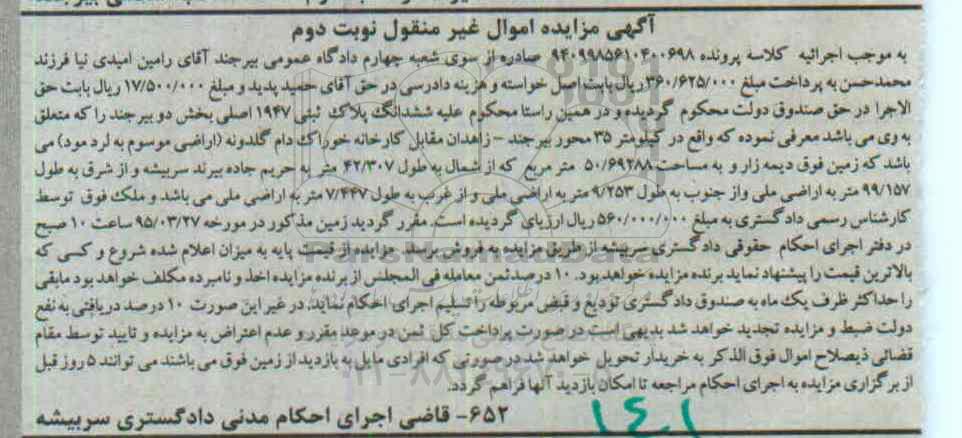 آگهی مزایده اموال غیر منقول نوبت دوم
به موجب اجرائیه کلاسه پرونده ۹۴۰۹۹۸۵۶۱۰۴۰۰۶۹۸ صادره از سوی شعبه چهارم دادگاه عمومی بیرجند آقای رامین امیدی نیا فرزند
محمدحسن به پرداخت مبلغ ۳۶۰/۶۲۵/۰۰۰ریال بابت اصل خواسته و هزینه دادرسی در حق آقای حمید پدید و مبلغ ۱۷/۵۰۰/۰۰۰ ریال بابت حق
الاجرا در حق صندوق دولت محکوم گردیده و در همین راستا محکوم علیه ششدانگ پلاک ثبتی ۱۹۴۷ اصلی بخش دو بیرجند را که متعلق
به وی می باشد معرفی نموده که واقع در کیلومتر ۳۵ محور بیرجند - زاهدان مقابل کارخانه خوراک دام گلدونه (اراضی موسوم به لرد مود) می
باشد که زمین فوق دیمه زار و به مساحت ۵۰/۶۹۲۸۸ متر مربع که از شمال به طول ۴۲/۳۰۷ متر به حریم جاده بیرند سربیشه و از شرق به طول
۹۹/۱۵۷ متر به اراضی ملی واز جنوب به طول ۹/۲۵۳ متر به اراضی ملی و از غرب به طول ۷/۴۴۷ متر به اراضی ملی می باشد و ملک فوق توسط
کارشناس رسمی دادگستری به مبلغ ۵۶۰/۰۰۰/۰۰۰ ریال ارزیای گردیده است. مقرر گردید زمین مذکور در مورخه ۹۵/۰۳/۲۷ ساعت ۱۰ صبح
در دفتر اجرای احکام حقوقی دادگستری سربیشه از طریق مزایده به فروش برسد. مزایده از قیمت پایه به میزان اعلام شده شروع و کسی که
بالاترین قیمت را پیشنهاد نماید برنده مزایده خواهد بود. ۱۰ درصد ثمن معامله فی المجلس از برنده مزایده اخذ و نامبرده مکلف خواهد بود مابقی
را حداکثر ظرف یک ماه به صندوق دادگستری تودیع و قبض مربوطه را تسلیم اجرای احکام نماید، در غیر این صورت ۱۰ درصد دریافتی به نفع
دولت ضبط و مزایده تجدید خواهد شد بدیهی است در صورت پرداخت کل ثمن در موعد مقرر و عدم اعتراض به مزایده و تایید توسط مقام
قضائی ذیصلاح اموال فوق الذکر به خریدار تحویل خواهد شد درصورتی که افرادی مایل به بازدید از زمین فوق می باشند می توانند ۵ روز قبل
از برگزاری مزایده به اجرای احکام مراجعه تا امکان بازدید آنها فراهم گردد.
۶۵۲- قاضی اجرای احکام مدنی دادگستری سربیشه
۱۴۱
ParsNamadData